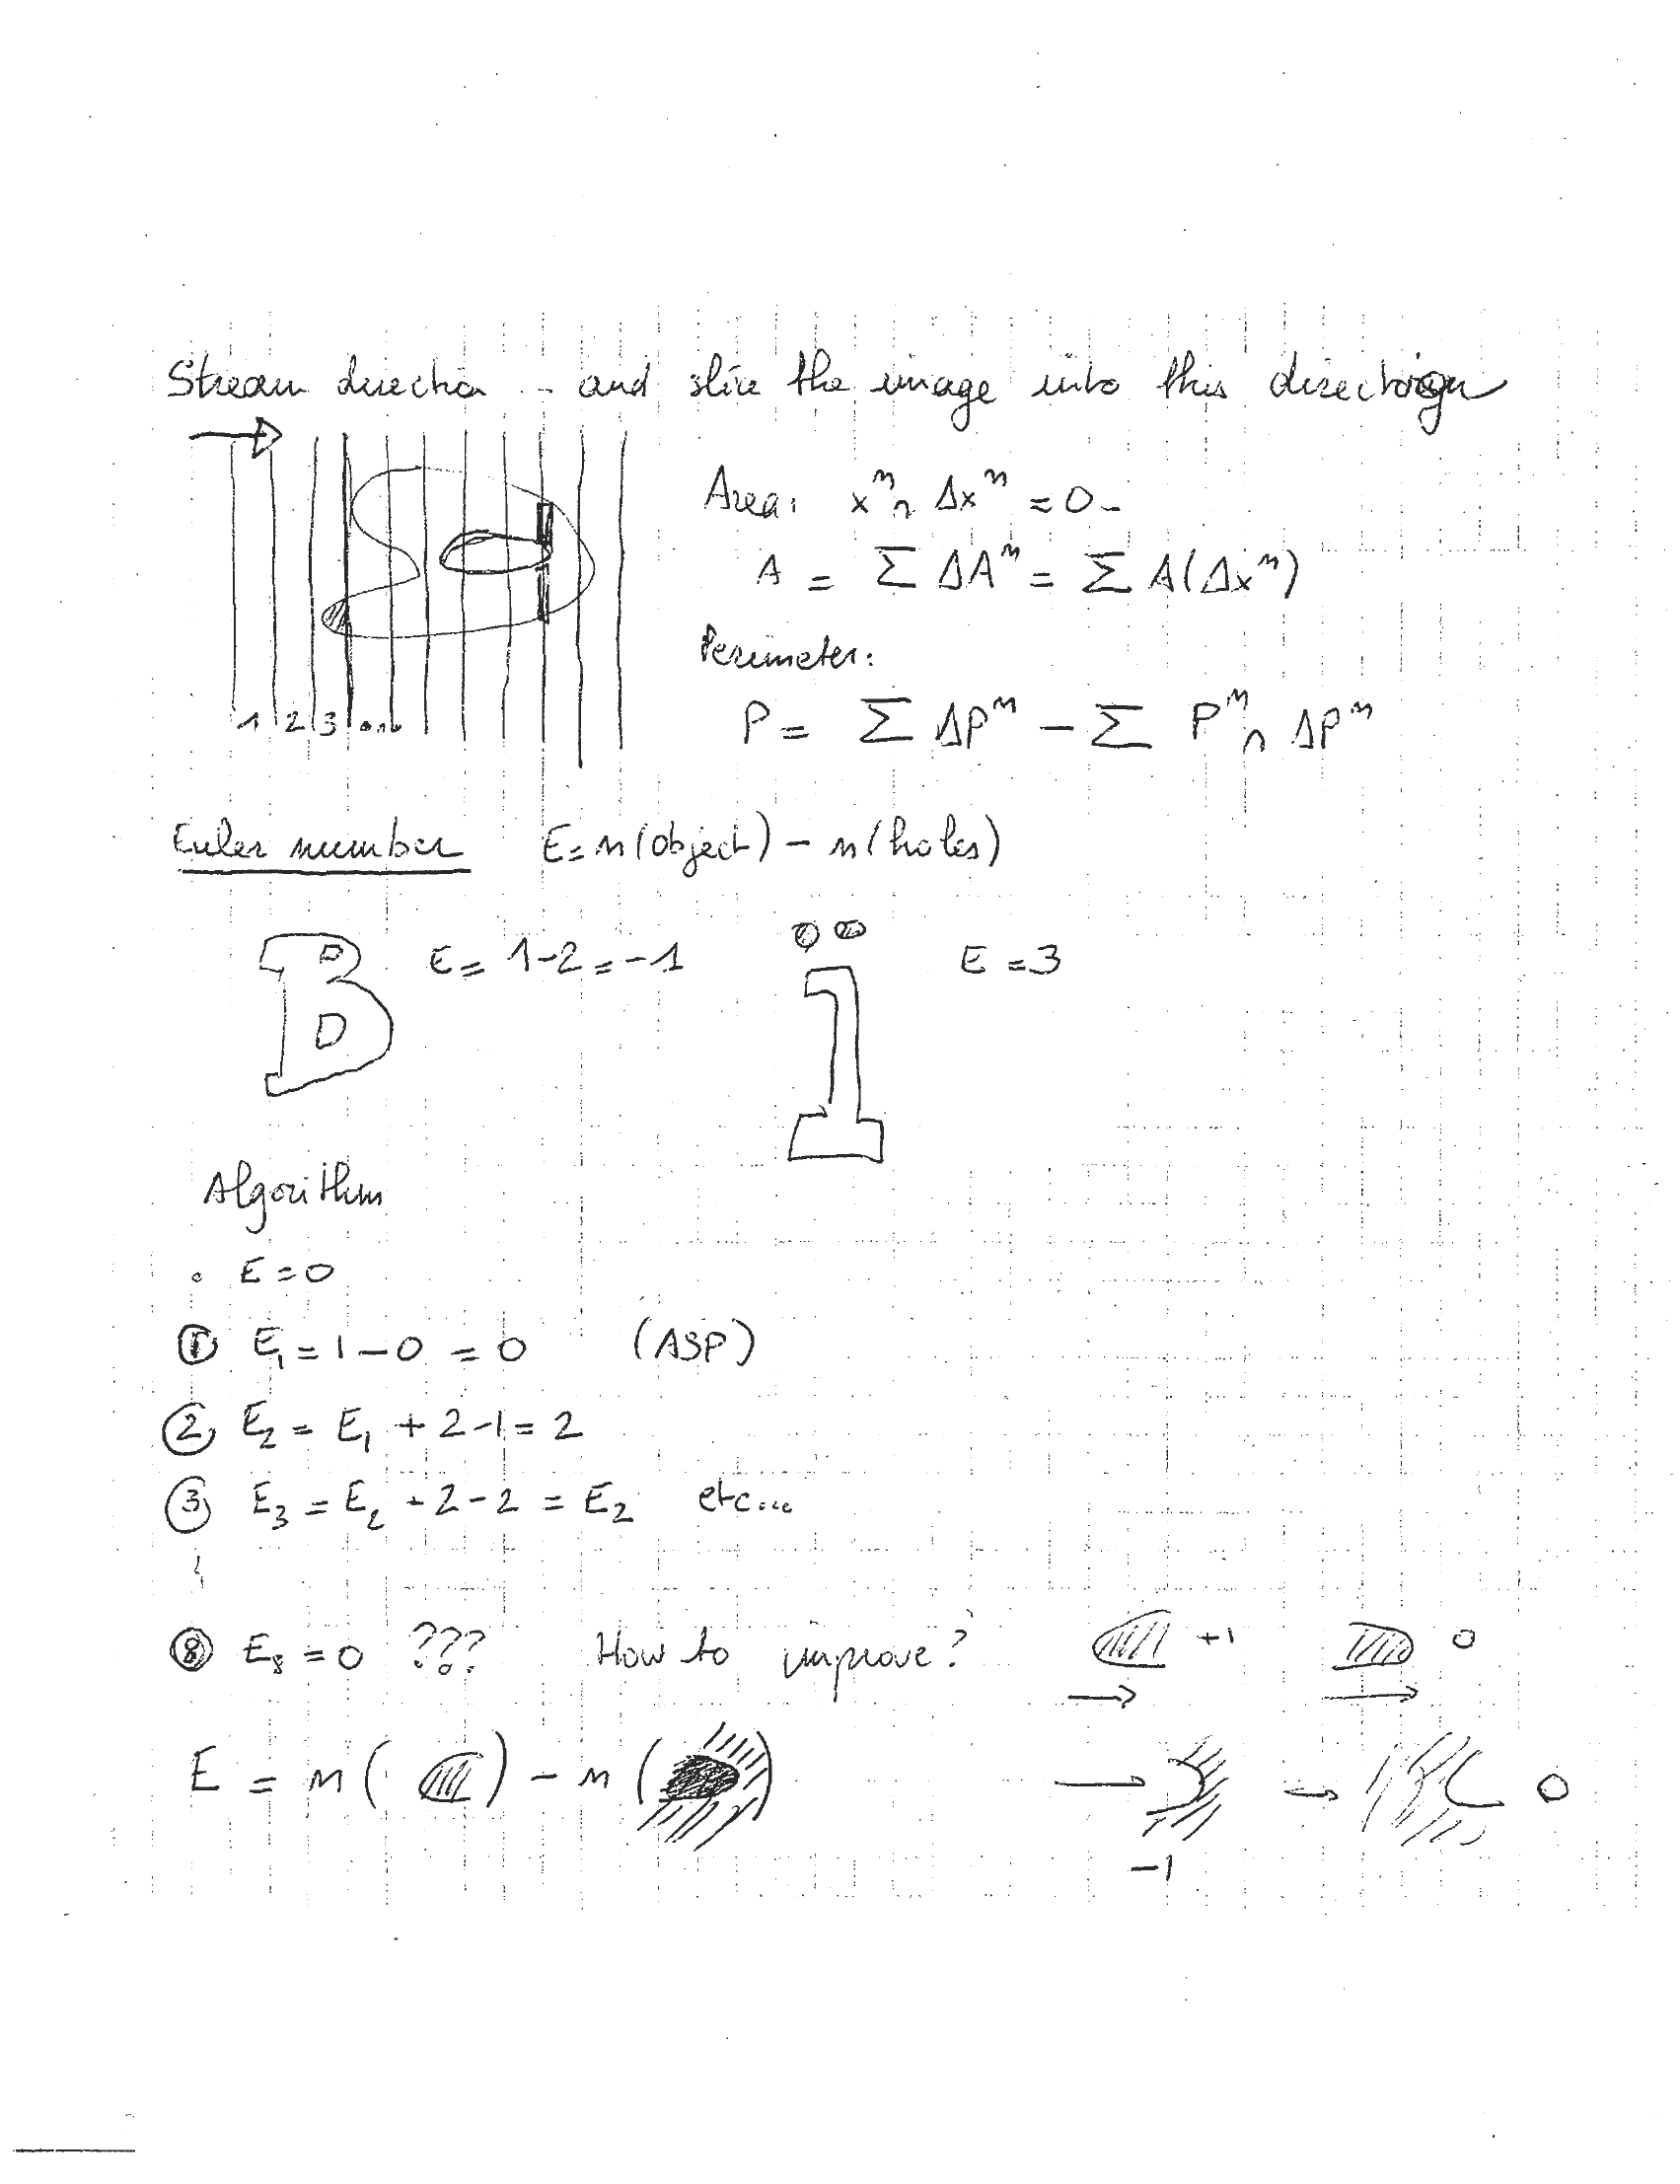 Stream direction - and slice the image into this direction
Area: x^n ∩ Δx^n = 0
A = Σ ΔA^n = Σ A(Δx^n)
Perimeter:
P = Σ ΔP^n - Σ P^n ∩ ΔP^n
1 2 3 ...
Euler number E = n(object) - n(holes)
E = 1-2 = -1
E = 3
Algorithm
. E = 0
① E₁ = 1 - 0 = 0 (ASP)
② E₂ = E₁ + 2 - 1 = 2
③ E₃ = E₂ + 2 - 2 = E₂ etc...
⑧ E₈ = 0 ??? How to improve? +1 0
E = n( ) - n( ) 0
-1